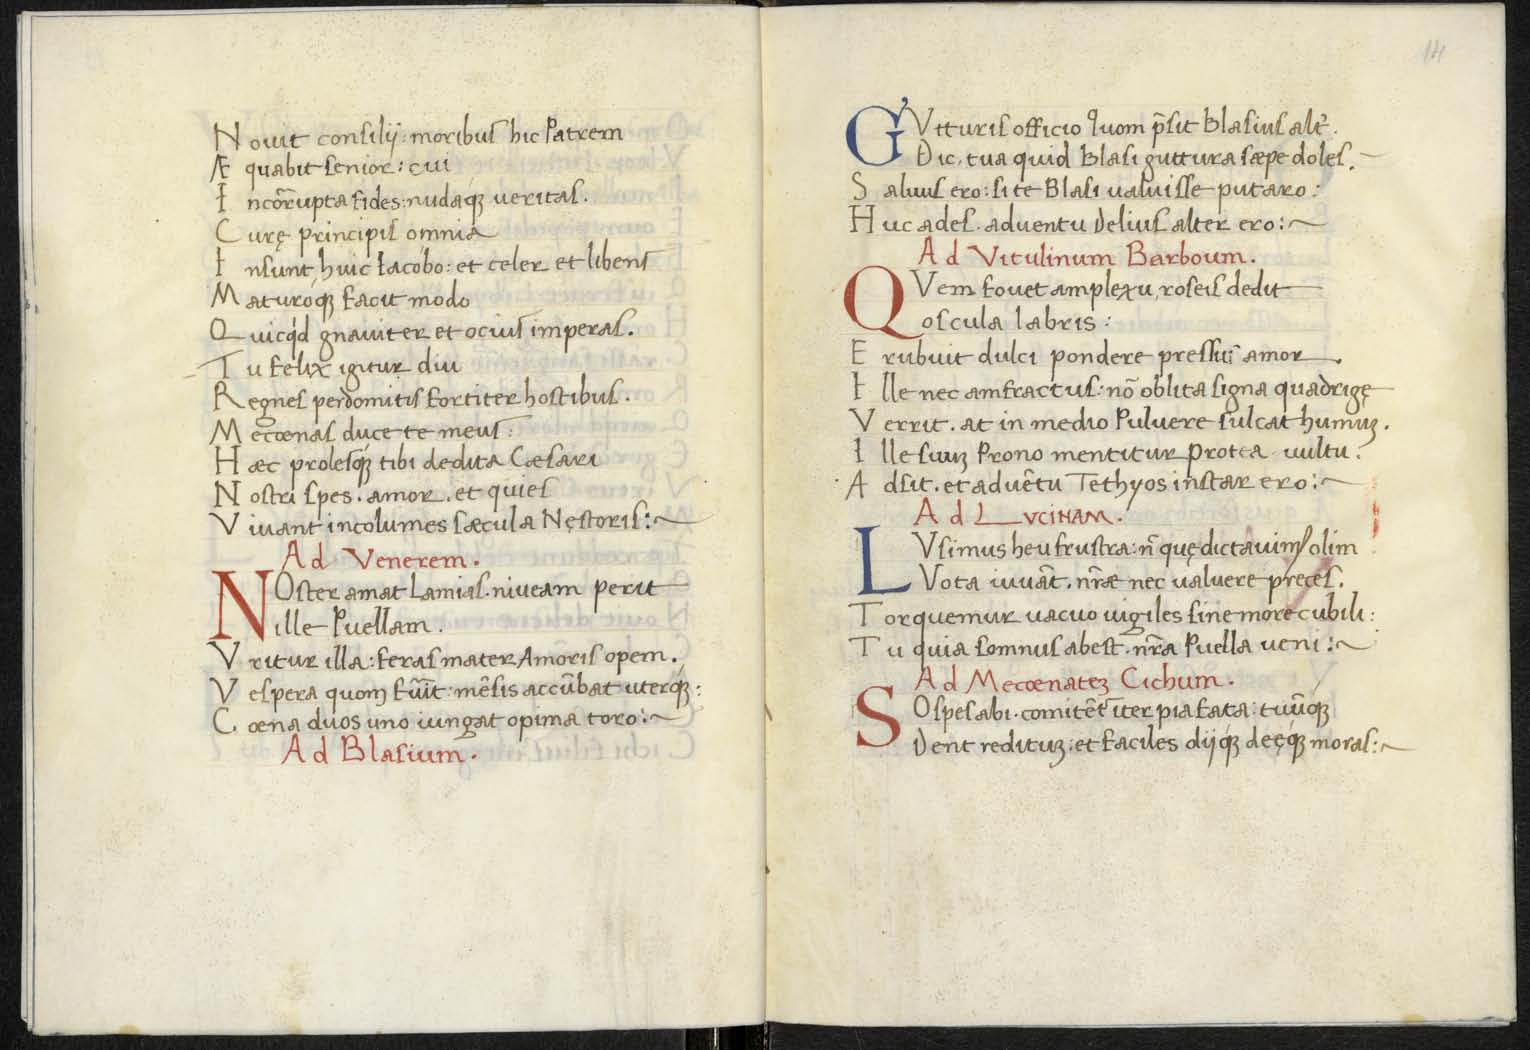 Novit consilij: moribus hic Patrem
Æquabit senior: cui
Incõrrupta fides: nudaq́ꝫ veritas.
Curę principis omnia
Insunt huic Iacobo: et celer et libens
Maturóq́ꝫ facit modo
Quicq́d gnaviter et ocius imperas.
Tu felix igitur diu
Regnes perdomitis fortiter hostibus.
Mecœnas duce te meus:
Hæc prolesq́ꝫ tibi dedita Cæsari
Nostri spes. amor. et quies
Vivant incolumes sæcula Nęstoris:~
Ad Venerem.
NOster amat Lamias. niveam perit
ille Puellam.
Vritur illa: feras mater Amoris opem.
Vespera quom fũĩt: mẽsis accũbat uterq́ꝫ:
Cœna duos uno iungat opima toro:~
Ad Blasium.
14
GVtturis officio quom p̃sit Blasius alt̃.
Dic. tua quid Blasi guttura sæpe doles.
Salvus ero: si te Blasi valuisse putaro:
Huc ades. adventu Delius alter ero:~
Ad Vitulinum Barboum.
QVem fovet amplexu, roseis dedit
oscula labris:
Erubuit dulci pondere pressus amor.
Ille nec amfractus: nõ oblita signa quadrigę
Verrit. at in medio Pulvere sulcat humuꝫ.
Ille suuꝫ Prono mentitur protea vultu:
Adsit. et advẽtu Tethyos instar ero:~
Ad LVCINAM.
LVsimus heu frustra: ñ quę dictavimꝰ olim
Vota iuvãt. nr̃æ nec valuere preces.
Torquemur vacuo vigiles sine more cubili:
Tu quia somnus abest. nr̃a Puella veni:~
Ad Mecœnateꝫ Cichum.
SOspes abi. comitẽt iter pia fata: tuũq́ꝫ
Dent redituꝫ: et faciles dijq́ꝫ deęq́ꝫ moras:~